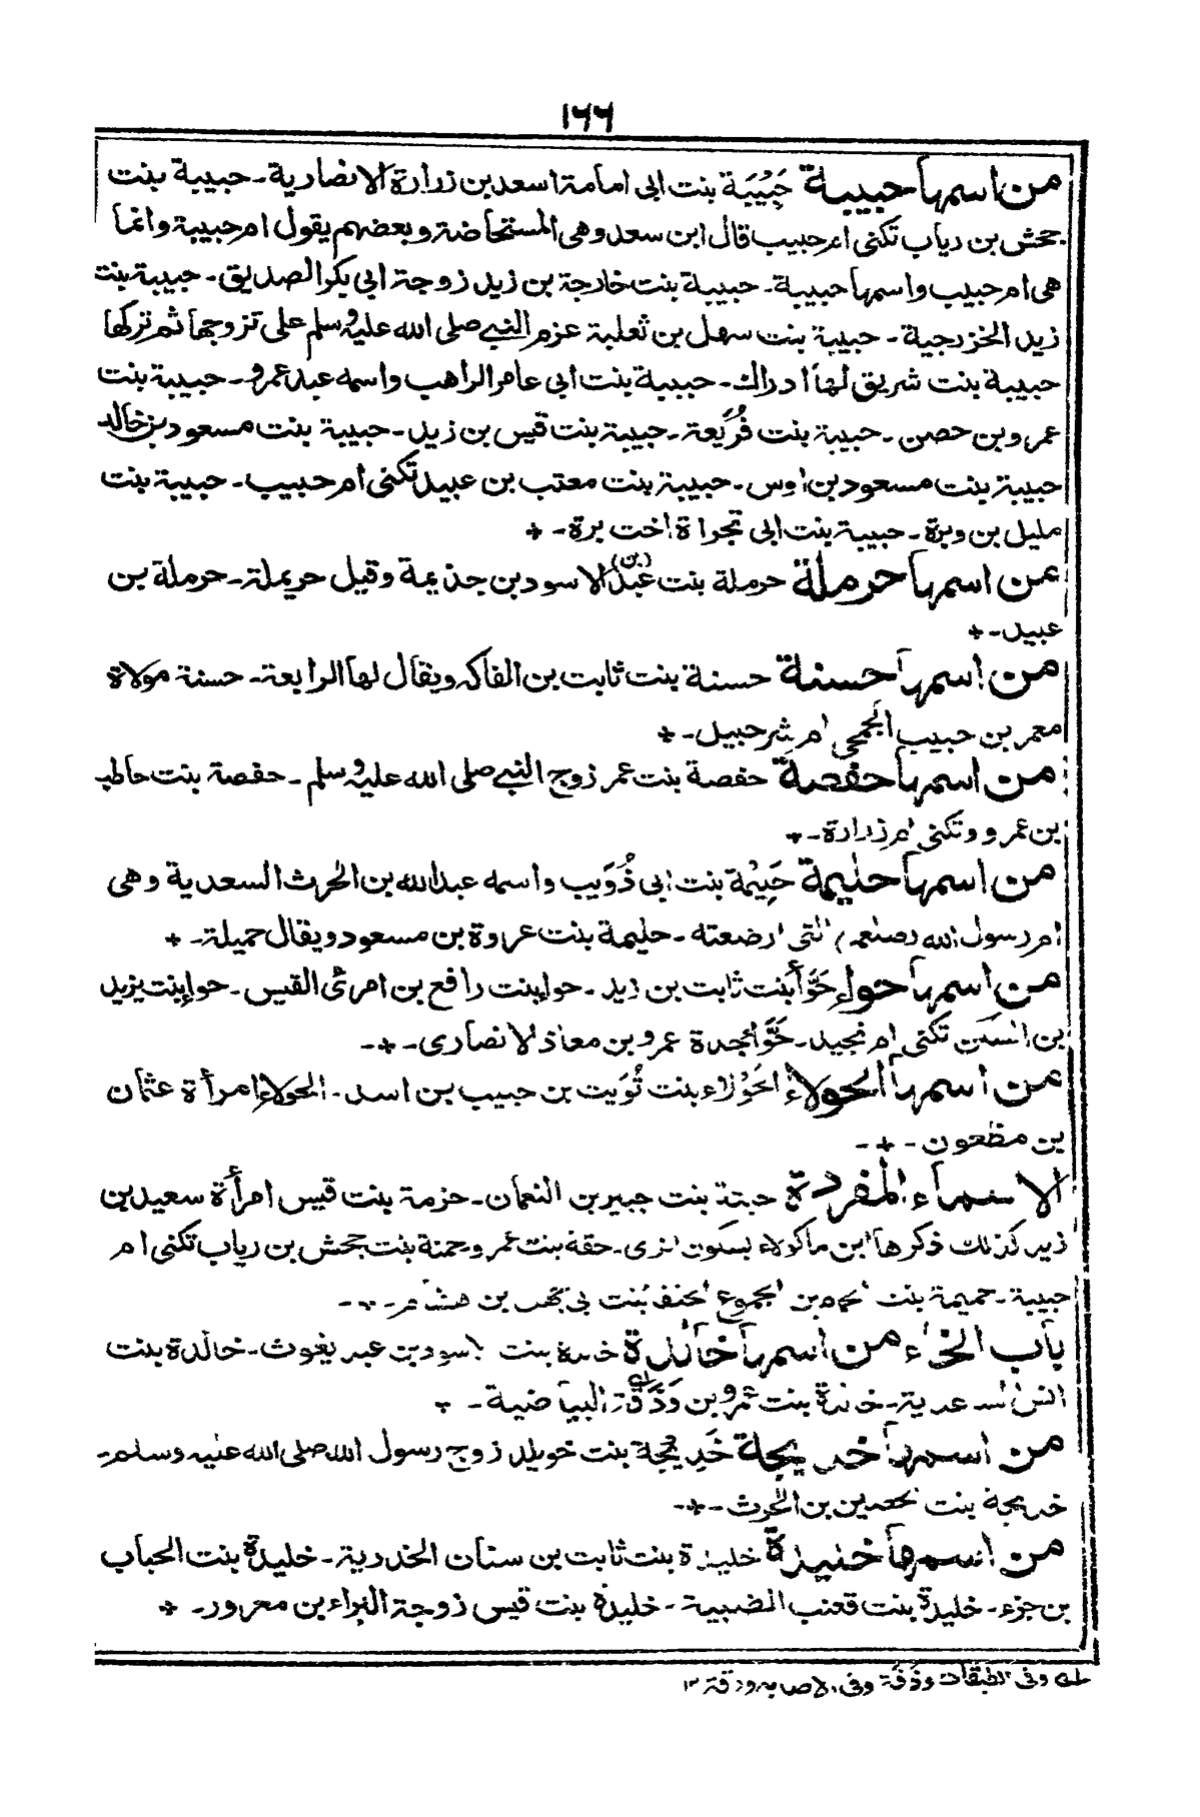 ١٦٦
من اسمها حبيبة حَبِيْبَة بنت ابى امامة اسعد بن زرارة الانصارية ـ حبيبة بنت
جحش بن رياب تكنى ام حبيب قال ابن سعد وهى المستحاضة وبعضهم يقول ام حبيبة وانما
هى ام حبيب واسمها حبيبة ـ حبيبة بنت خارجة بن زيد زوجة ابى بكر الصديق ـ حبيبة بنت
زيد الخزرجية ـ حبيبة بنت سهل بن ثعلبة عزم النبى صلى الله عليه وسلم على تزوجها ثم تركها
حبيبة بنت شريق لها ادراك ـ حبيبة بنت ابى عامر الراهب واسمه عبد عمرو ـ حبيبة بنت
عمرو بن حصن ـ حبيبة بنت فُرَيعة ـ حبيبة بنت قيس بن زيد ـ حبيبة بنت مسعود بن خالد
حبيبة بنت مسعود بن اوس ـ حبيبة بنت معتب بن عبيد تكنى ام حبيب ـ حبيبة بنت
مليل بن وبرة ـ حبيبة بنت ابى تجراة اخت برة ـ +
من اسمها حرملة حرملة بنت عبد (بن) الاسود بن جذيمة وقيل حريملة ـ حرملة بن
عبيد ـ +
من اسمها حسنة حسنة بنت ثابت بن الفاكه ويقال لها الرابعة ـ حسنة مولاة
معمر بن حبيب الجمحى ام شرحبيل ـ +
من اسمها حفصة حفصة بنت عمر زوج النبى صلى الله عليه وسلم ـ حفصة بنت حاطب
بن عمرو وتكنى ام زرارة ـ +
من اسمها حليمة حَلِيْمة بنت ابى ذُوَيب واسمه عبد الله بن الحرث السعدية وهى
ام رسول الله (صلعم) التى ارضعته ـ حليمة بنت عروة بن مسعود ويقال جميلة ـ +
من اسمها حواء حَوَّأ بنت ثابت بن زيد ـ حواء بنت رافع بن امرئ القيس ـ حواء بنت يزيد
بن السكن تكنى ام نجيد ـ حَوَّاء جدة عمرو بن معاذ الانصارى ـ + ـ
من اسمها الحولاء الحَوْلاء بنت تُوَيت بن حبيب بن اسد ـ الحولاء امرأة عثمان
بن مظعون ـ + ـ
الاسماء المفردة حبتة بنت جبير بن النعمان ـ حزمة بنت قيس امرأة سعيد بن
زيد كذلك ذكرها ابن ماكولاء بسكون الزى ـ حقة بنت عمرو ـ حمنة بنت جحش بن رياب تكنى ام
حبيبة ـ حميمة بنت بن الجموع بنت بن هشام ـ + ـ
باب الخاء من اسمها خالدة خالدة بنت الاسود بن عبد يغوث ـ خالدة بنت
انس الساعدية ـ خالدة بنت عمرو بن وَذَقَة له البياضية ـ +
من اسمها خديجة خَدِيجة بنت خويلد زوج رسول الله صلى الله عليه وسلم ـ
خديجة بنت الحصين بن الحرث ـ + ـ
من اسمها خليدة خليدة بنت ثابت بن سنان الخدرية ـ خليدة بنت الحباب
بن جزء ـ خليدة بنت قعنب الضبية ـ خليدة بنت قيس زوجة البراء بن معرور ـ +
له وفى الطبقات وذفة وفى الاصابه ودقة ١٢